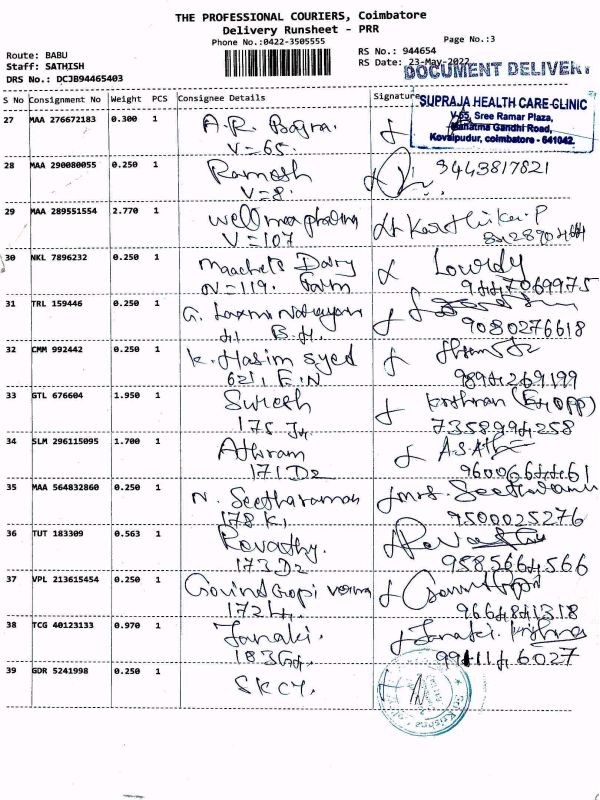 THE PROFESSIONAL COURIERS, Coimbatore
Delivery Runsheet - PRR
Phone No.:0422-3505555
Page No.:3
Route: BABU
Staff: SATHISH
DRS No.: DCJB94465403
RS No.: 944654
RS Date: 23-May-2022
DOCUMENT DELIVERY
S No Consignment No Weight PCS Consignee Details Signature
SUPRAJA HEALTH CARE-CLINIC
V-65, Sree Ramar Plaza,
Mahatma Gandhi Road,
Kovaipudur, coimbatore - 641042.
27 MAA 276672183 0.300 1 A.R.
V=65.
28 MAA 290080055 0.250 1 Ramesh 9443817821
V=8.
29 MAA 289551554 2.770 1 pharma P
V=107
30 NKL 7896232 0.250 1 Lowrdy
N=119. Farm 9447069975
31 TRL 159446 0.250 1 G.
B.H. 9080276618
32 CMM 992442 0.250 1 K. Hasim Syed
621, E.N 9894269199
33 GTL 676604 1.950 1 Suresh
175 7358994258
34 SLM 296115095 1.700 1 Athiram
171D2 9600664461
35 MAA 564832860 0.250 1 N. Seetharaman mrs.
178 K, 9500025276
36 TUT 183309 0.563 1 Revathy. Revathy
173D2 9585664566
37 VPL 213615454 0.250 1 Govind Gopi verma
172 9664841318
38 TCG 40123133 0.970 1 Janaki. Janaki.
183 9941146027
39 GDR 5241998 0.250 1 SKCY.
Sri Krishna